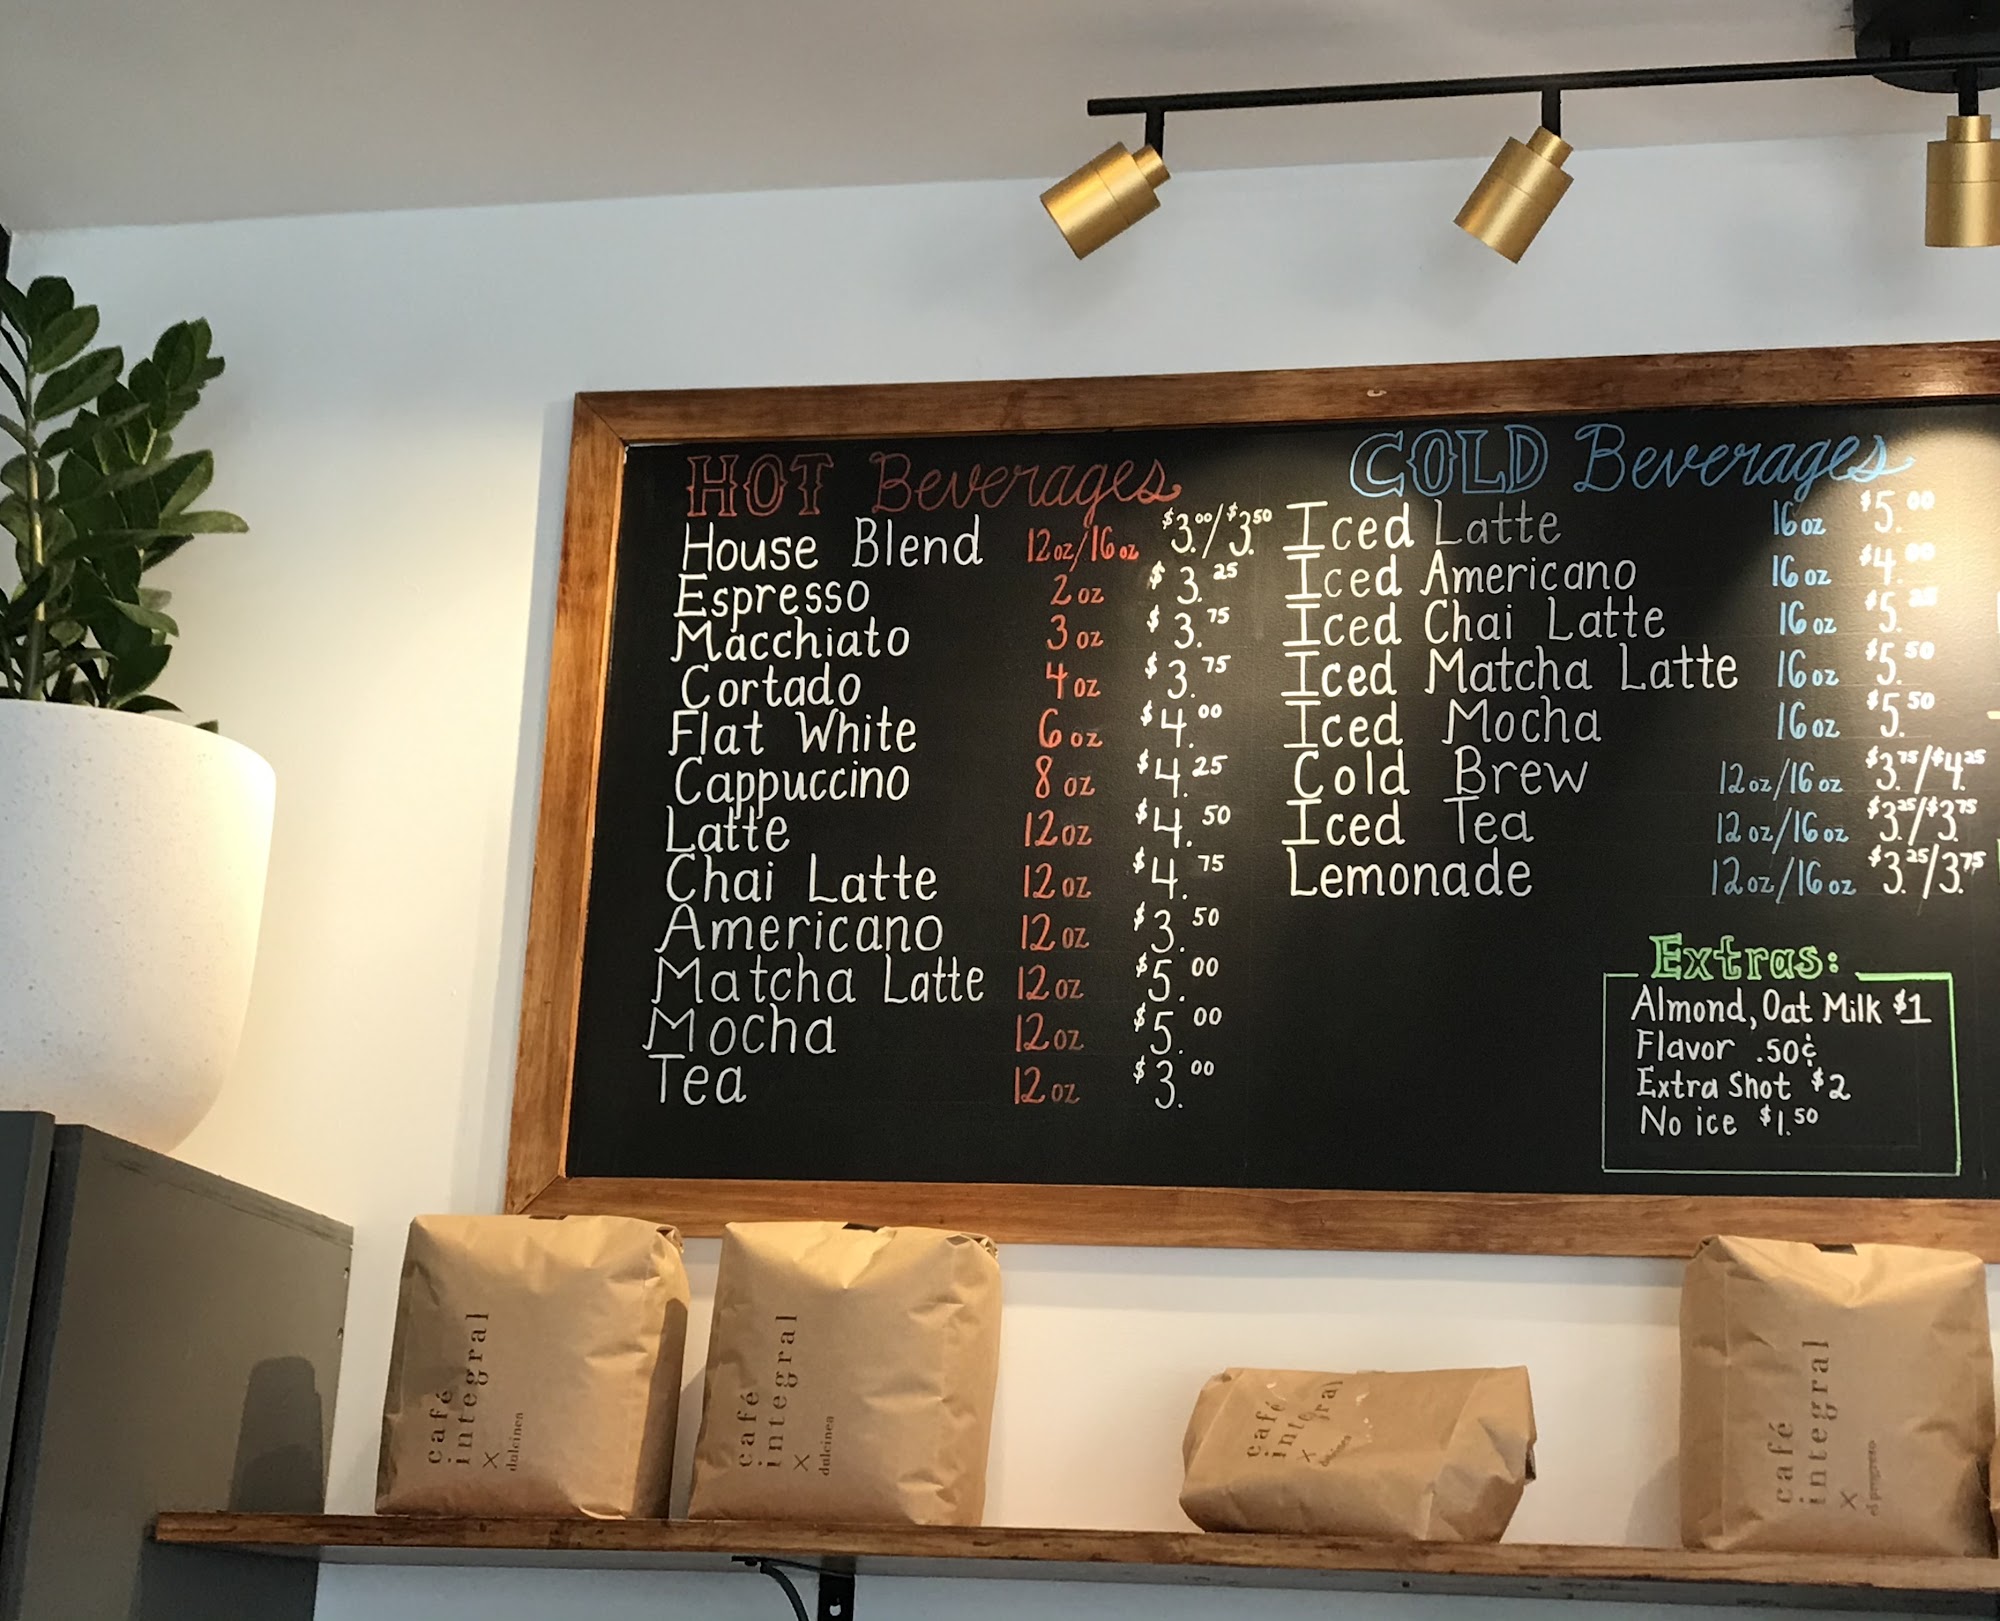 HOT Beverages
House Blend 12oz/16oz $3.00/$3.50
Espresso 2oz $3.25
Macchiato 3oz $3.75
Cortado 4oz $3.75
Flat White 6oz $4.00
Cappuccino 8oz $4.25
Latte 12oz $4.50
Chai Latte 12oz $4.75
Americano 12oz $3.50
Matcha Latte 12oz $5.00
Mocha 12oz $5.00
Tea 12oz $3.00
COLD Beverages
Iced Latte 16oz $5.00
Iced Americano 16oz $4.00
Iced Chai Latte 16oz $5.25
Iced Matcha Latte 16oz $5.50
Iced Mocha 16oz $5.50
Cold Brew 12oz/16oz $3.75/$4.25
Iced Tea 12oz/16oz $3.25/$3.75
Lemonade 12oz/16oz $3.25/3.75
Extras:
Almond, Oat Milk $1
Flavor .50¢
Extra Shot $2
No ice $1.50
café
integral
×
dulcinea
café
integral
×
dulcinea
café
integral
×
dulcinea
café
integral
×
el progreso